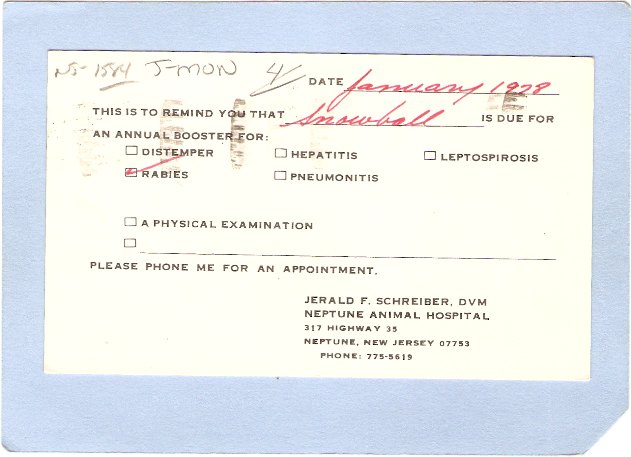 NJ-1584 J-MON 4/
DATE January 1978
THIS IS TO REMIND YOU THAT Snowball IS DUE FOR
AN ANNUAL BOOSTER FOR:
DISTEMPER HEPATITIS LEPTOSPIROSIS
RABIES PNEUMONITIS
A PHYSICAL EXAMINATION
PLEASE PHONE ME FOR AN APPOINTMENT.
JERALD F. SCHREIBER, DVM
NEPTUNE ANIMAL HOSPITAL
317 HIGHWAY 35
NEPTUNE, NEW JERSEY 07753
PHONE: 775-5619